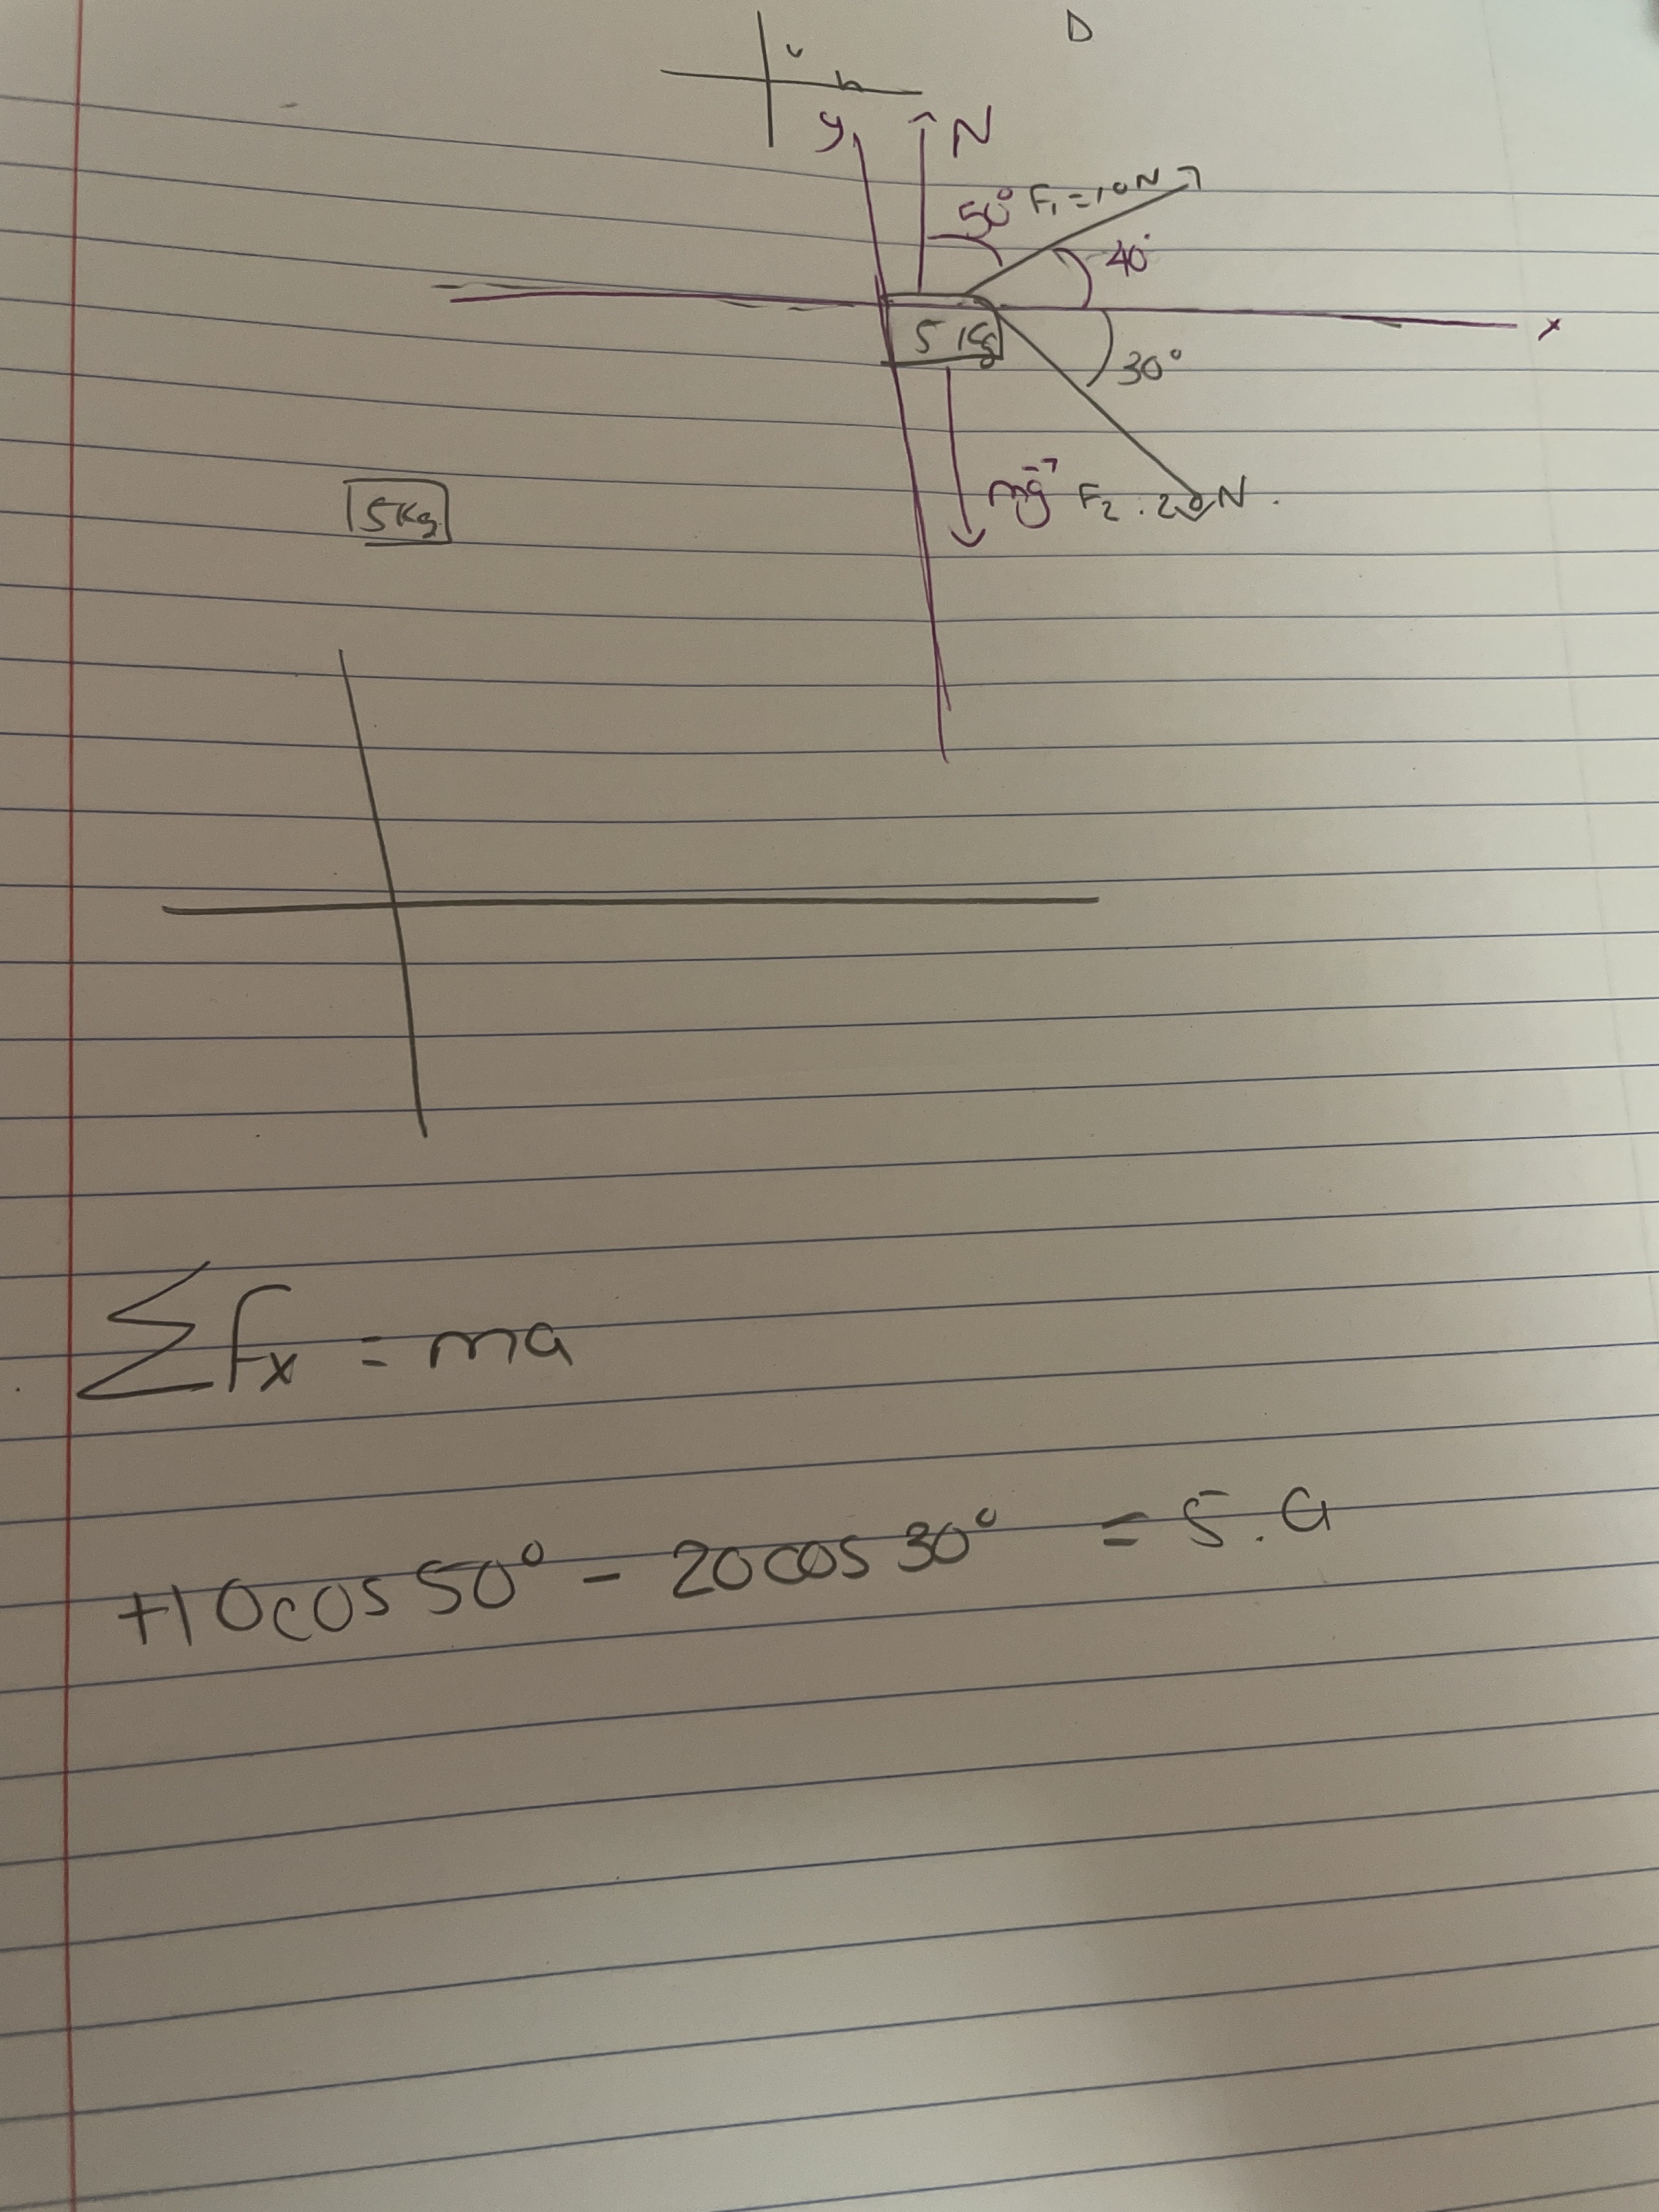 D
v
h
y N
50° F₁ = 10N
40°
x
5 Kg
30°
mg⃗ F₂ : 20N.
5Kg
∑Fx = ma
+10cos50° - 20cos30° = 5.a